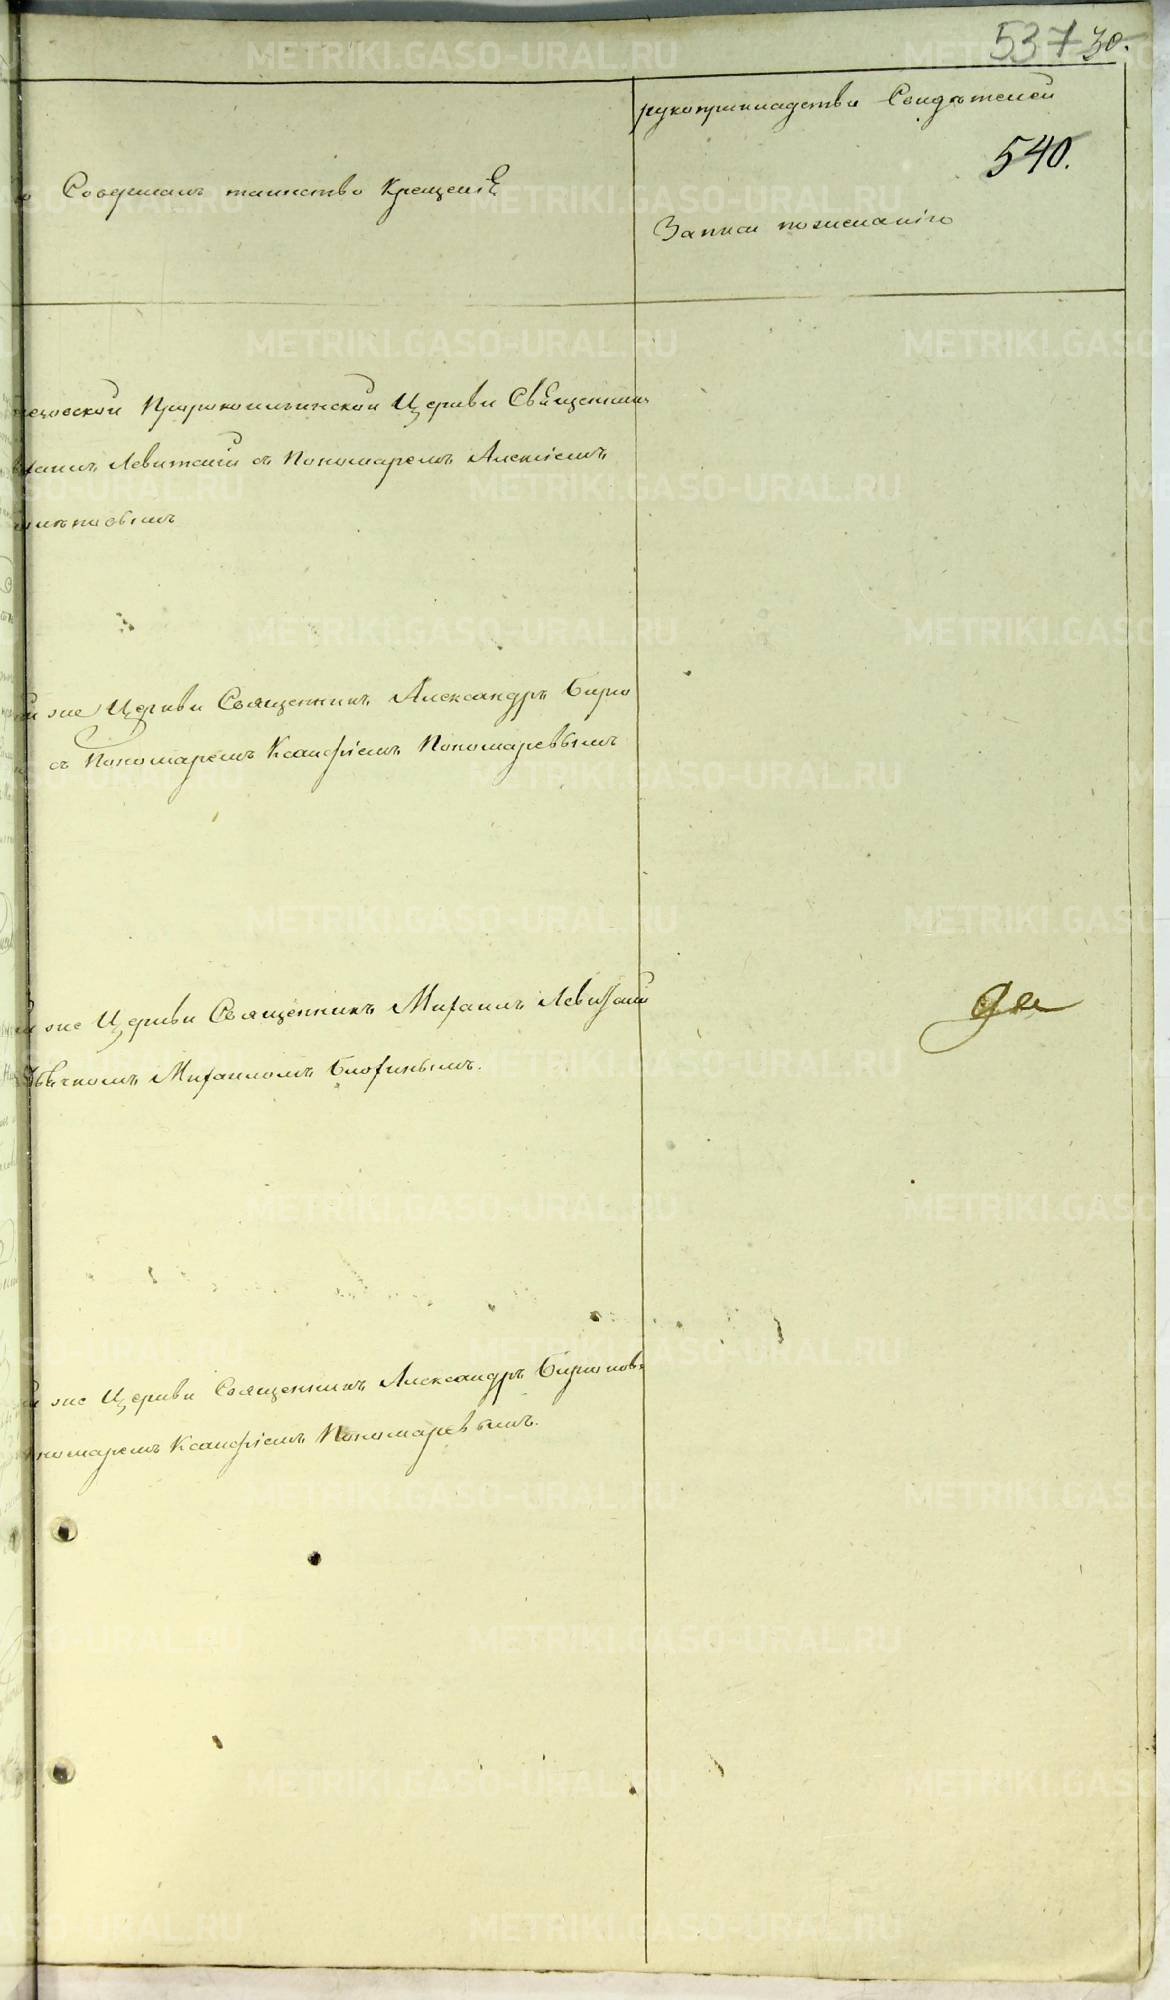 537 30.
рукоприкладства Свидѣтелей
540.
Совершалъ таинство Крещенiе
Записи по желанiю
Пророкоильинской Церкви Священникъ
Левитскiй съ Пономаремъ Алексiемъ
же Церкви Священникъ Александръ Бирю
съ Пономаремъ Ксанфiемъ Пономаревымъ
же Церкви Священникъ Михаилъ Левитскiй
Михаиломъ Блохинымъ.
же Церкви Священникъ Александръ Бирюковъ
Ксанфiемъ Пономаревымъ.
METRIKI.GASO-URAL.RU